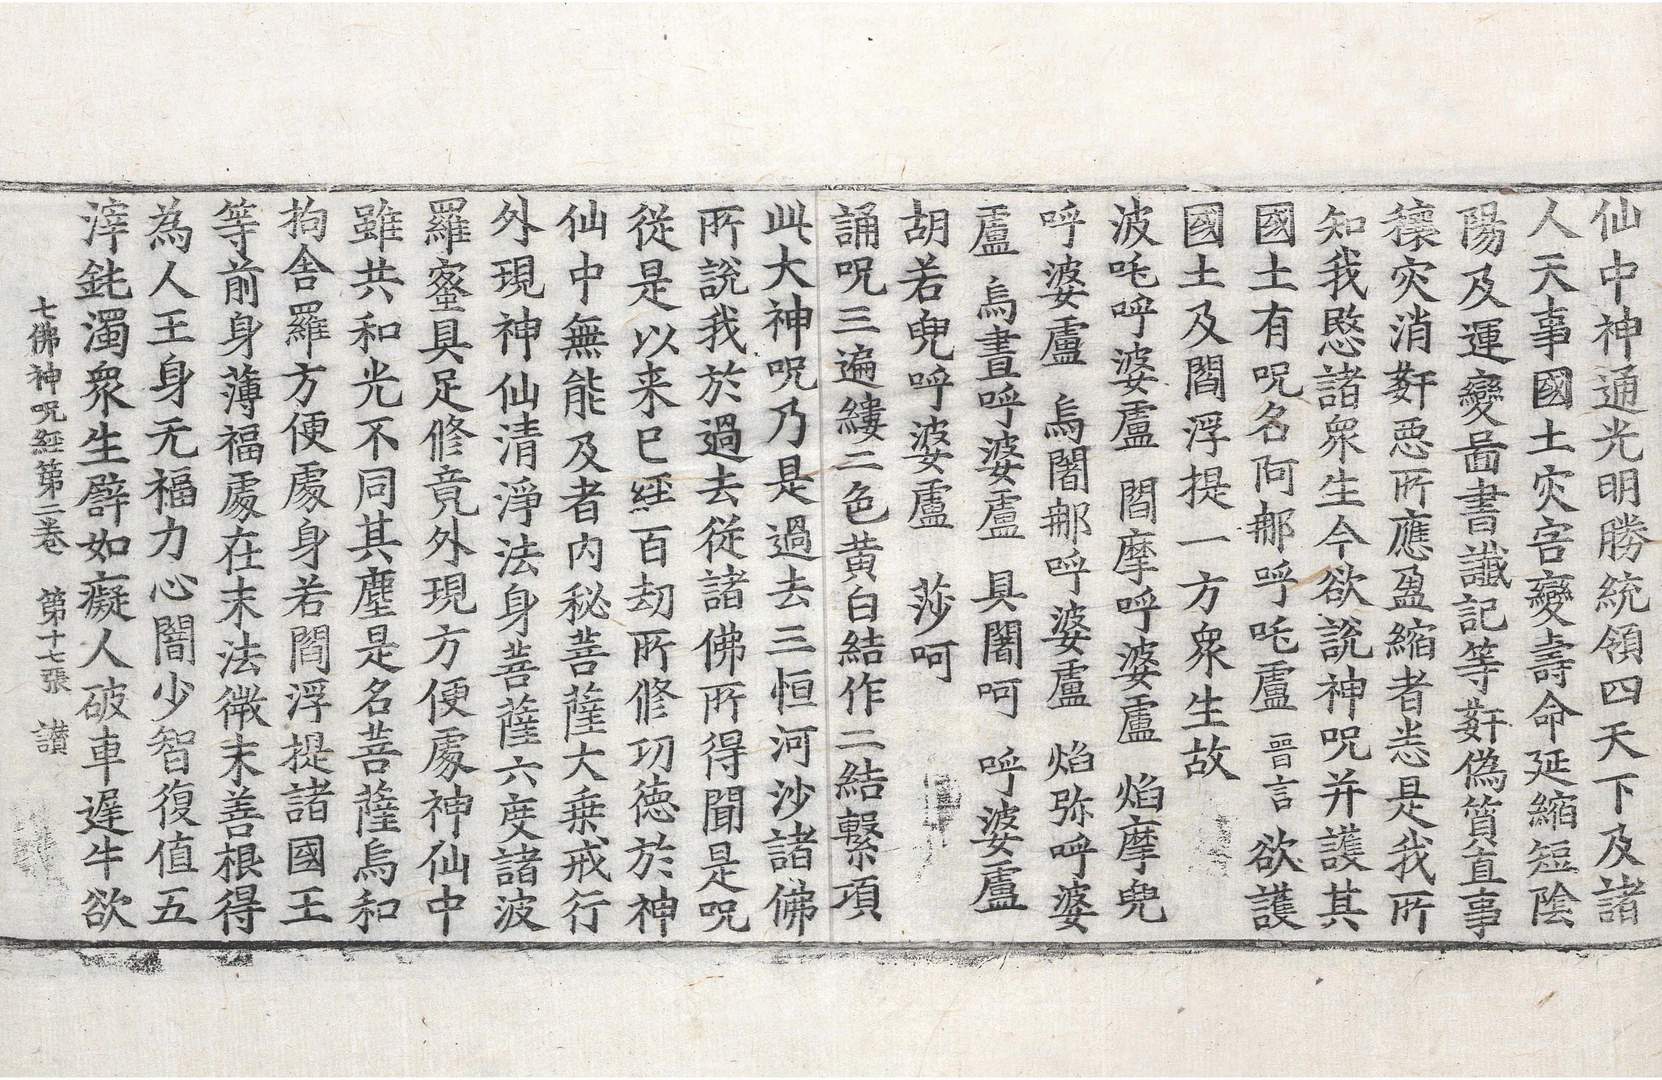 仙中神通光明勝統領四天下及諸
人天事國土灾害變壽命延縮短陰
陽及運變啚書讖記等姧偽質直事
穰灾消姧悪所應盈縮者悉是我所
知我愍諸衆生今欲說神呪并護其
國土有呪名阿郍呼吒盧 晉言 欲護
國土及閻浮提一方衆生故
波吒呼婆盧 閻摩呼婆盧 焰摩兜
呼婆盧 烏闍郍呼婆盧 焰弥呼婆
盧 烏晝呼婆盧 具闍呵 呼婆盧
胡若兜呼婆盧 莎呵
誦呪三遍縷二色黃白結作二結繫項
此大神呪乃是過去三恒河沙諸佛
所說我於過去從諸佛所得聞是呪
從是以来巳經百刧所修功徳於神
仙中無能及者內秘菩薩大乗戒行
外現神仙清淨法身菩薩六度諸波
羅蜜具足修竟外現方便處神仙中
雖共和光不同其塵是名菩薩烏和
拘舍羅方便處身若閻浮提諸國王
等前身薄福處在末法微末善根得
為人王身无福力心闇少智復值五
滓鈍濁衆生譬如癡人破車遅牛欲
七佛神呪經第二卷 第十七張 讃